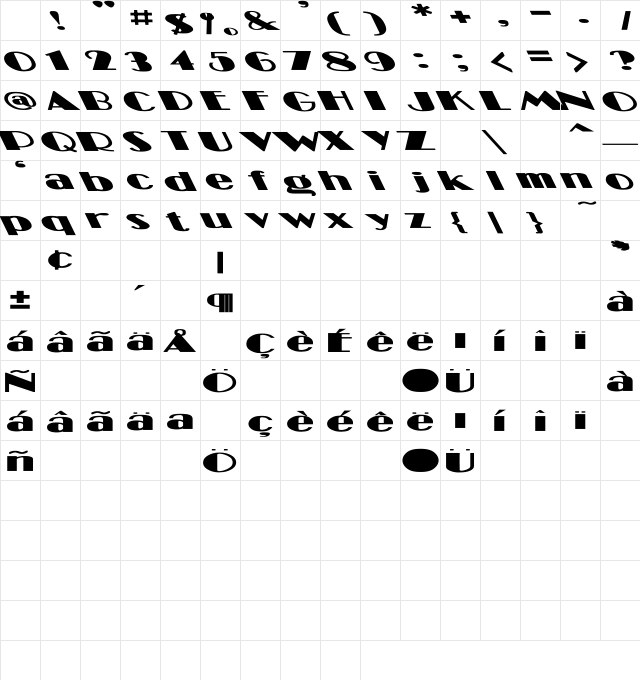 ! " # $ % & ' ( ) * + , - . /
0 1 2 3 4 5 6 7 8 9 : ; < = > ?
@ A B C D E F G H I J K L M N O
P Q R S T U V W X Y Z \ ^ _
‘ a b c d e f g h i j k l m n o
p q r s t u v w x y z { \ } ~
¢ |
± ´ ¶ à
á â ã ä Å Ç è É ê ë í î ï
Ñ Ö Ü à
á â ã ä a ç è é ê ë í î ï
ñ Ö Ü